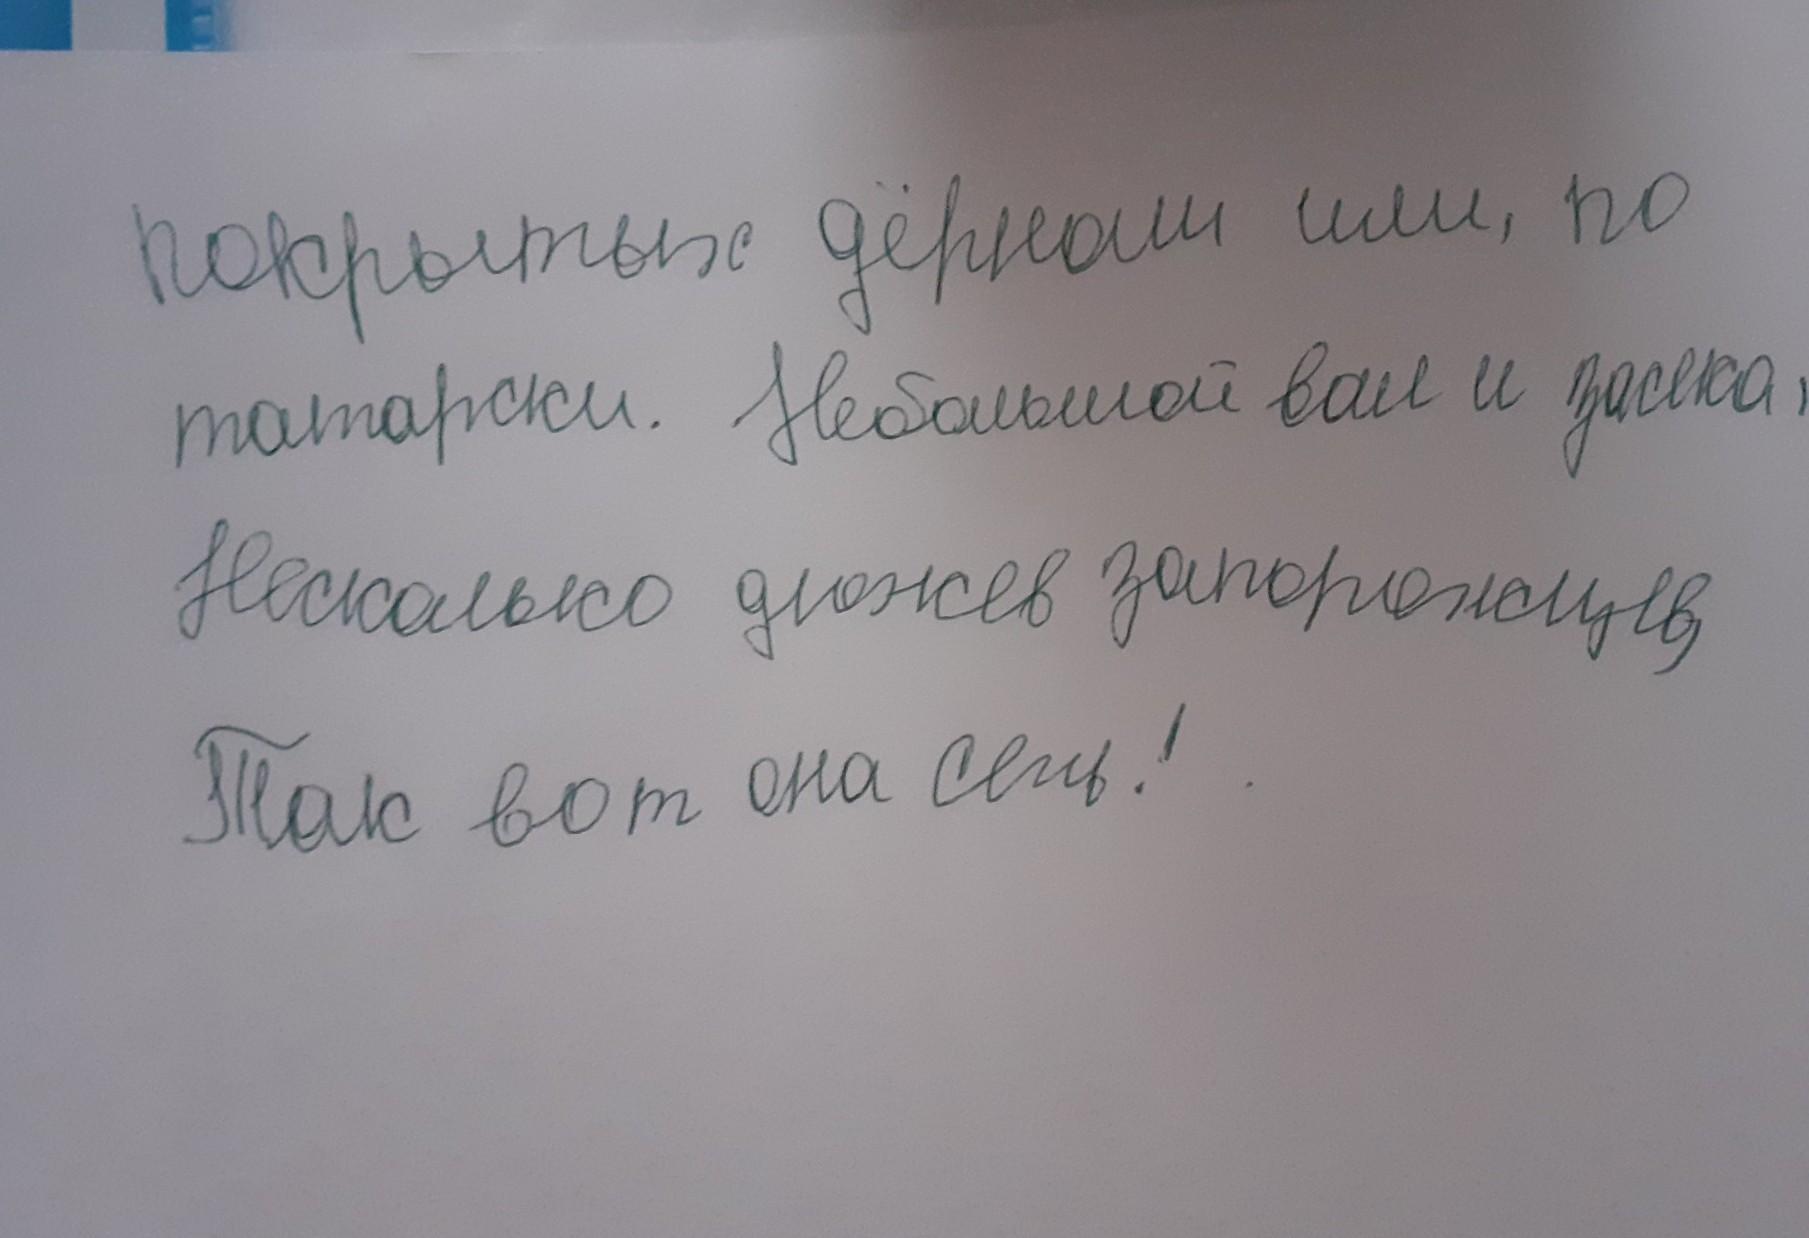 покрытых дёрном или, по
татарски. Небольшой вал и засека,
Несколько дюжев запорожцев,
Так вот она сечь!